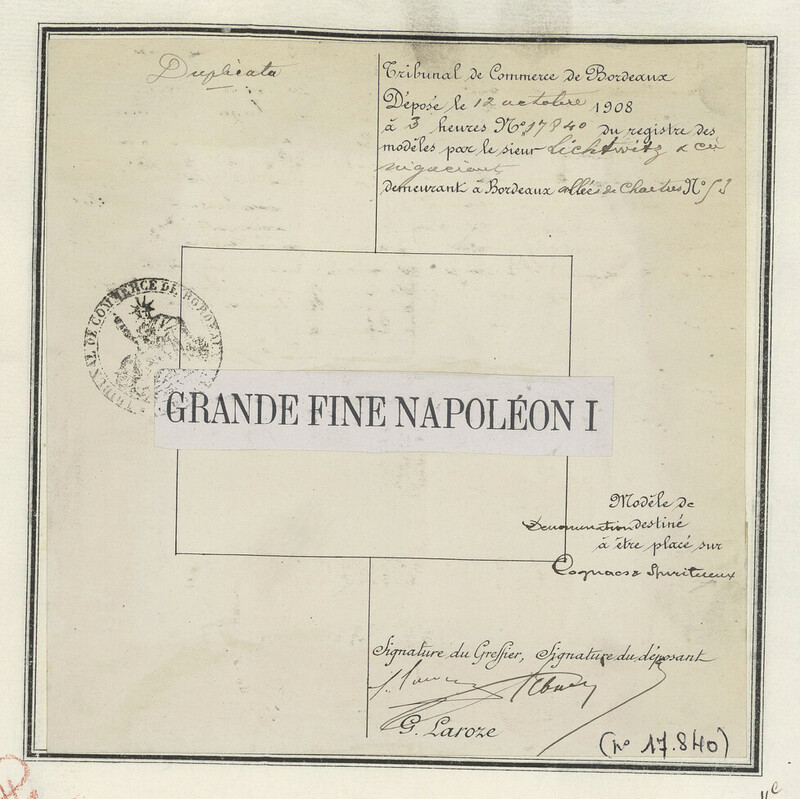 Duplicata
Tribunal de Commerce de Bordeaux
Déposé le 12 octobre 1908
à 3 heures N° 17840 du registre des
modèles par le sieur Lichtwitz & Cie
négociant
demeurant à Bordeaux allées de Chartres N° 53
TRIBUNAL DE COMMERCE DE BORDEAUX
GRANDE FINE NAPOLÉON I
Modèle de
Dénomination destiné
à être placé sur
Cognacs & Spiritueux
Signature du Greffier, Signature du déposant
G. Laroze
(n° 17.840)